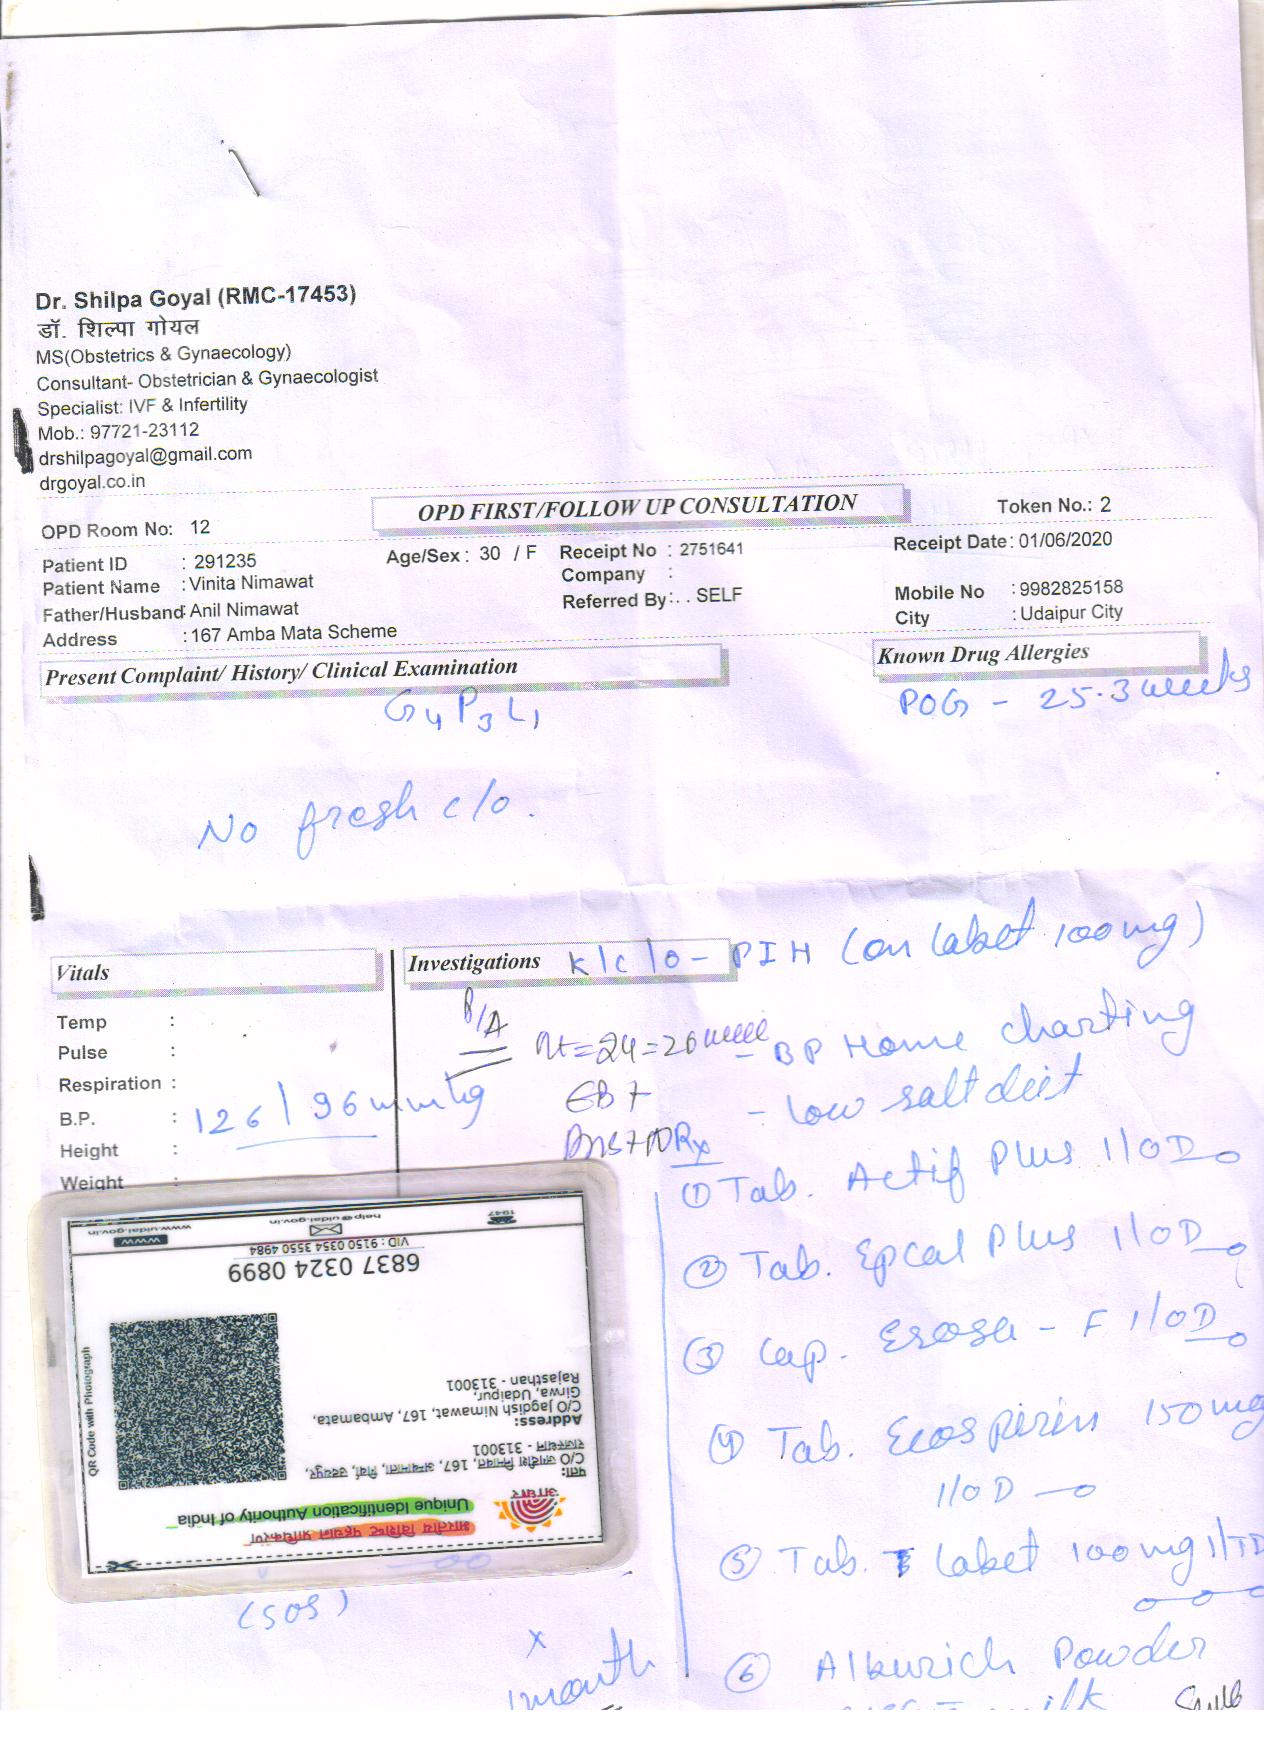 Dr. Shilpa Goyal (RMC-17453)
डॉ. शिल्पा गोयल
MS(Obstetrics & Gynaecology)
Consultant- Obstetrician & Gynaecologist
Specialist: IVF & Infertility
Mob.: 97721-23112
drshilpagoyal@gmail.com
drgoyal.co.in
OPD Room No: 12 OPD FIRST/FOLLOW UP CONSULTATION Token No.: 2
Patient ID : 291235 Age/Sex : 30 / F Receipt No : 2751641 Receipt Date: 01/06/2020
Patient Name : Vinita Nimawat Company :
Father/Husband: Anil Nimawat Referred By:. . SELF Mobile No : 9982825158
Address : 167 Amba Mata Scheme City : Udaipur City
Present Complaint/ History/ Clinical Examination Known Drug Allergies
G4P3L1 POG - 25.3 weeks
No fresh c/o.
Vitals
Temp :
Pulse :
Respiration :
B.P. : 126/96 mmHg
Height :
Weight :
Investigations K/c/o - PIH (on Labet 100mg)
P/A - BP Home charting
- Low salt diet
Rx
① Tab. Actif Plus 1/OD
② Tab. Epcal Plus 1/OD
③ Cap. - F 1/OD
④ Tab. Ecospirin 150mg
1/OD
⑤ Tab. Labet 100mg 1/TD
⑥ Powder
milk
www.uidai.gov.in help@uidai.gov.in 1947
WWW
VID : 9150 0354 3550 4984
6837 0324 0899
QR Code with Photograph
Address:
C/O Jagdish Nimawat, 167, Ambamata,
Girwa, Udaipur,
Rajasthan - 313001
पता:
C/O जगदीश निमावत, 167, अम्बामाता, गिर्वा, उदयपुर,
राजस्थान - 313001
आधार
Unique Identification Authority of India
भारतीय विशिष्ट पहचान प्राधिकरण
(SOS)
x
1 month